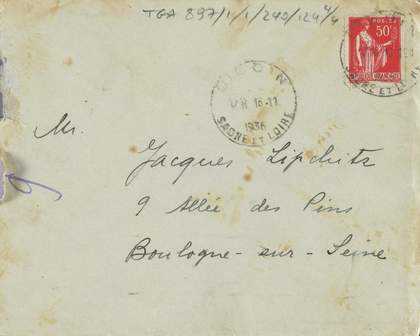 TGA 897/1/1/240/124 4/4
POSTES
50c
DIGOIN
16-11
1936
SAONE ET LOIRE
SAONE ET LOIRE
Mr.
Jacques Lipchitz
9 Allée des Pins
Boulogne-sur-Seine